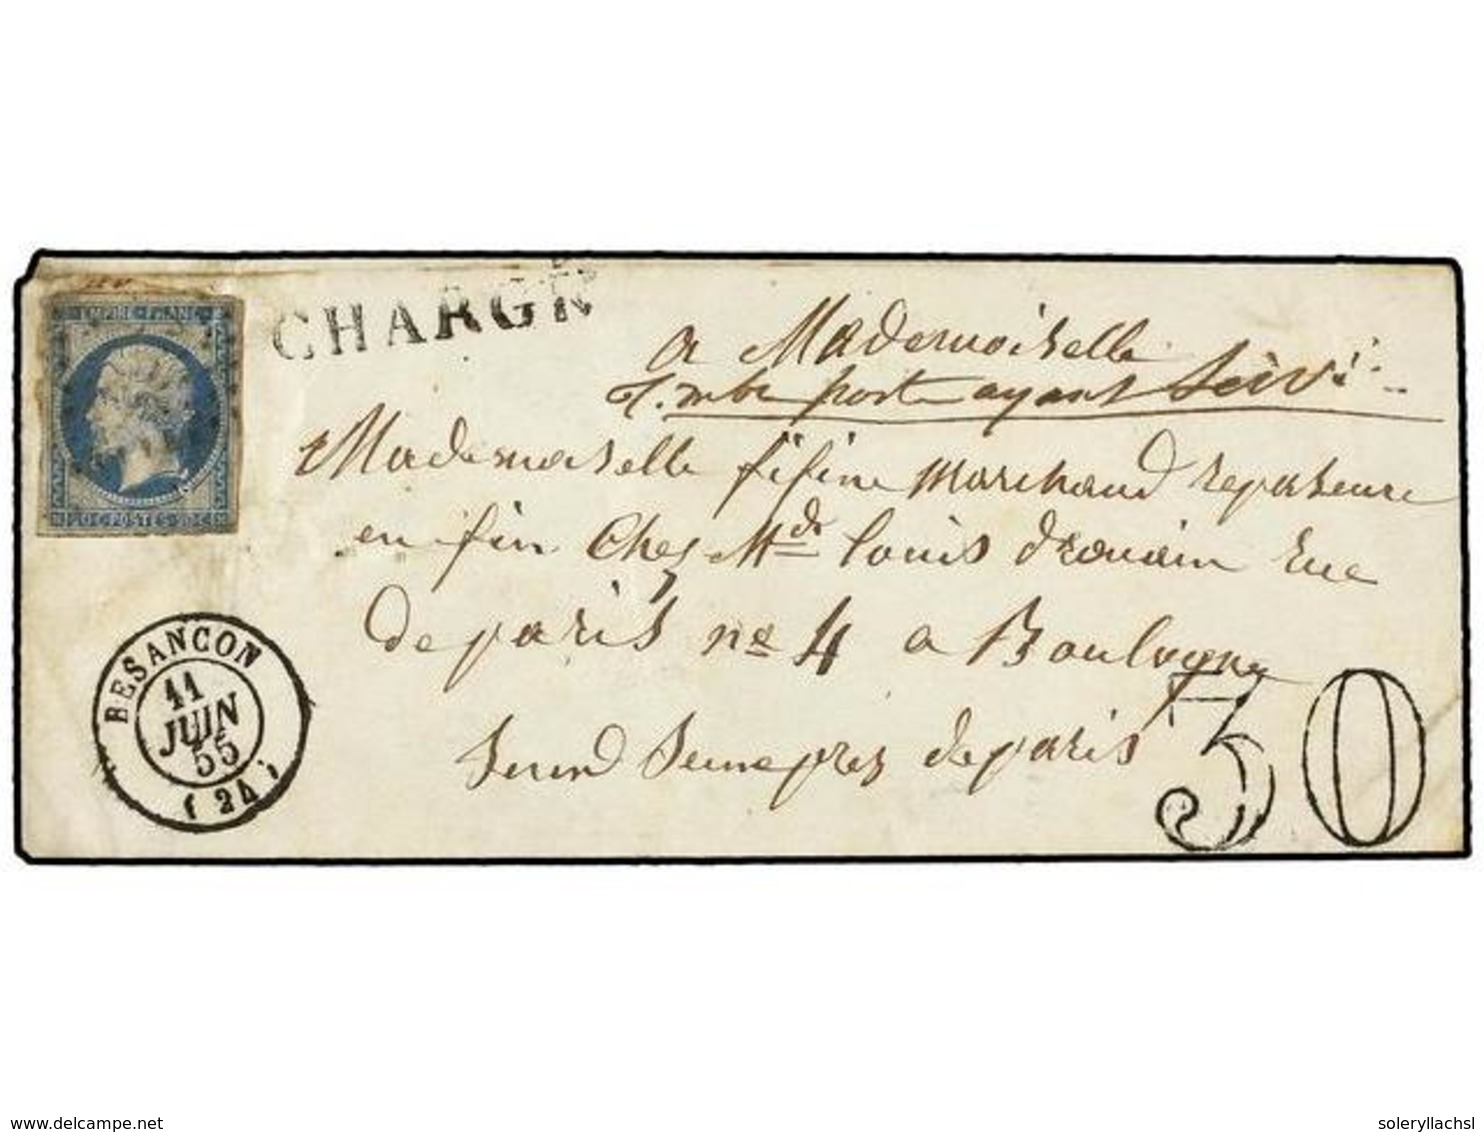 EMPIRE FRANC
20 C POSTES 20 C
CHARGÉ
a Mademoiselle
Timbre poste ayant Servi
Mademoiselle fifine Marchand repaseure
en fin Chez Md louis drouain rue
de paris no 4 a Boulogne
sur Seine pres de paris
30
BESANCON
11
JUIN
55
( 24 )
www.delcampe.net
soleryllachsl